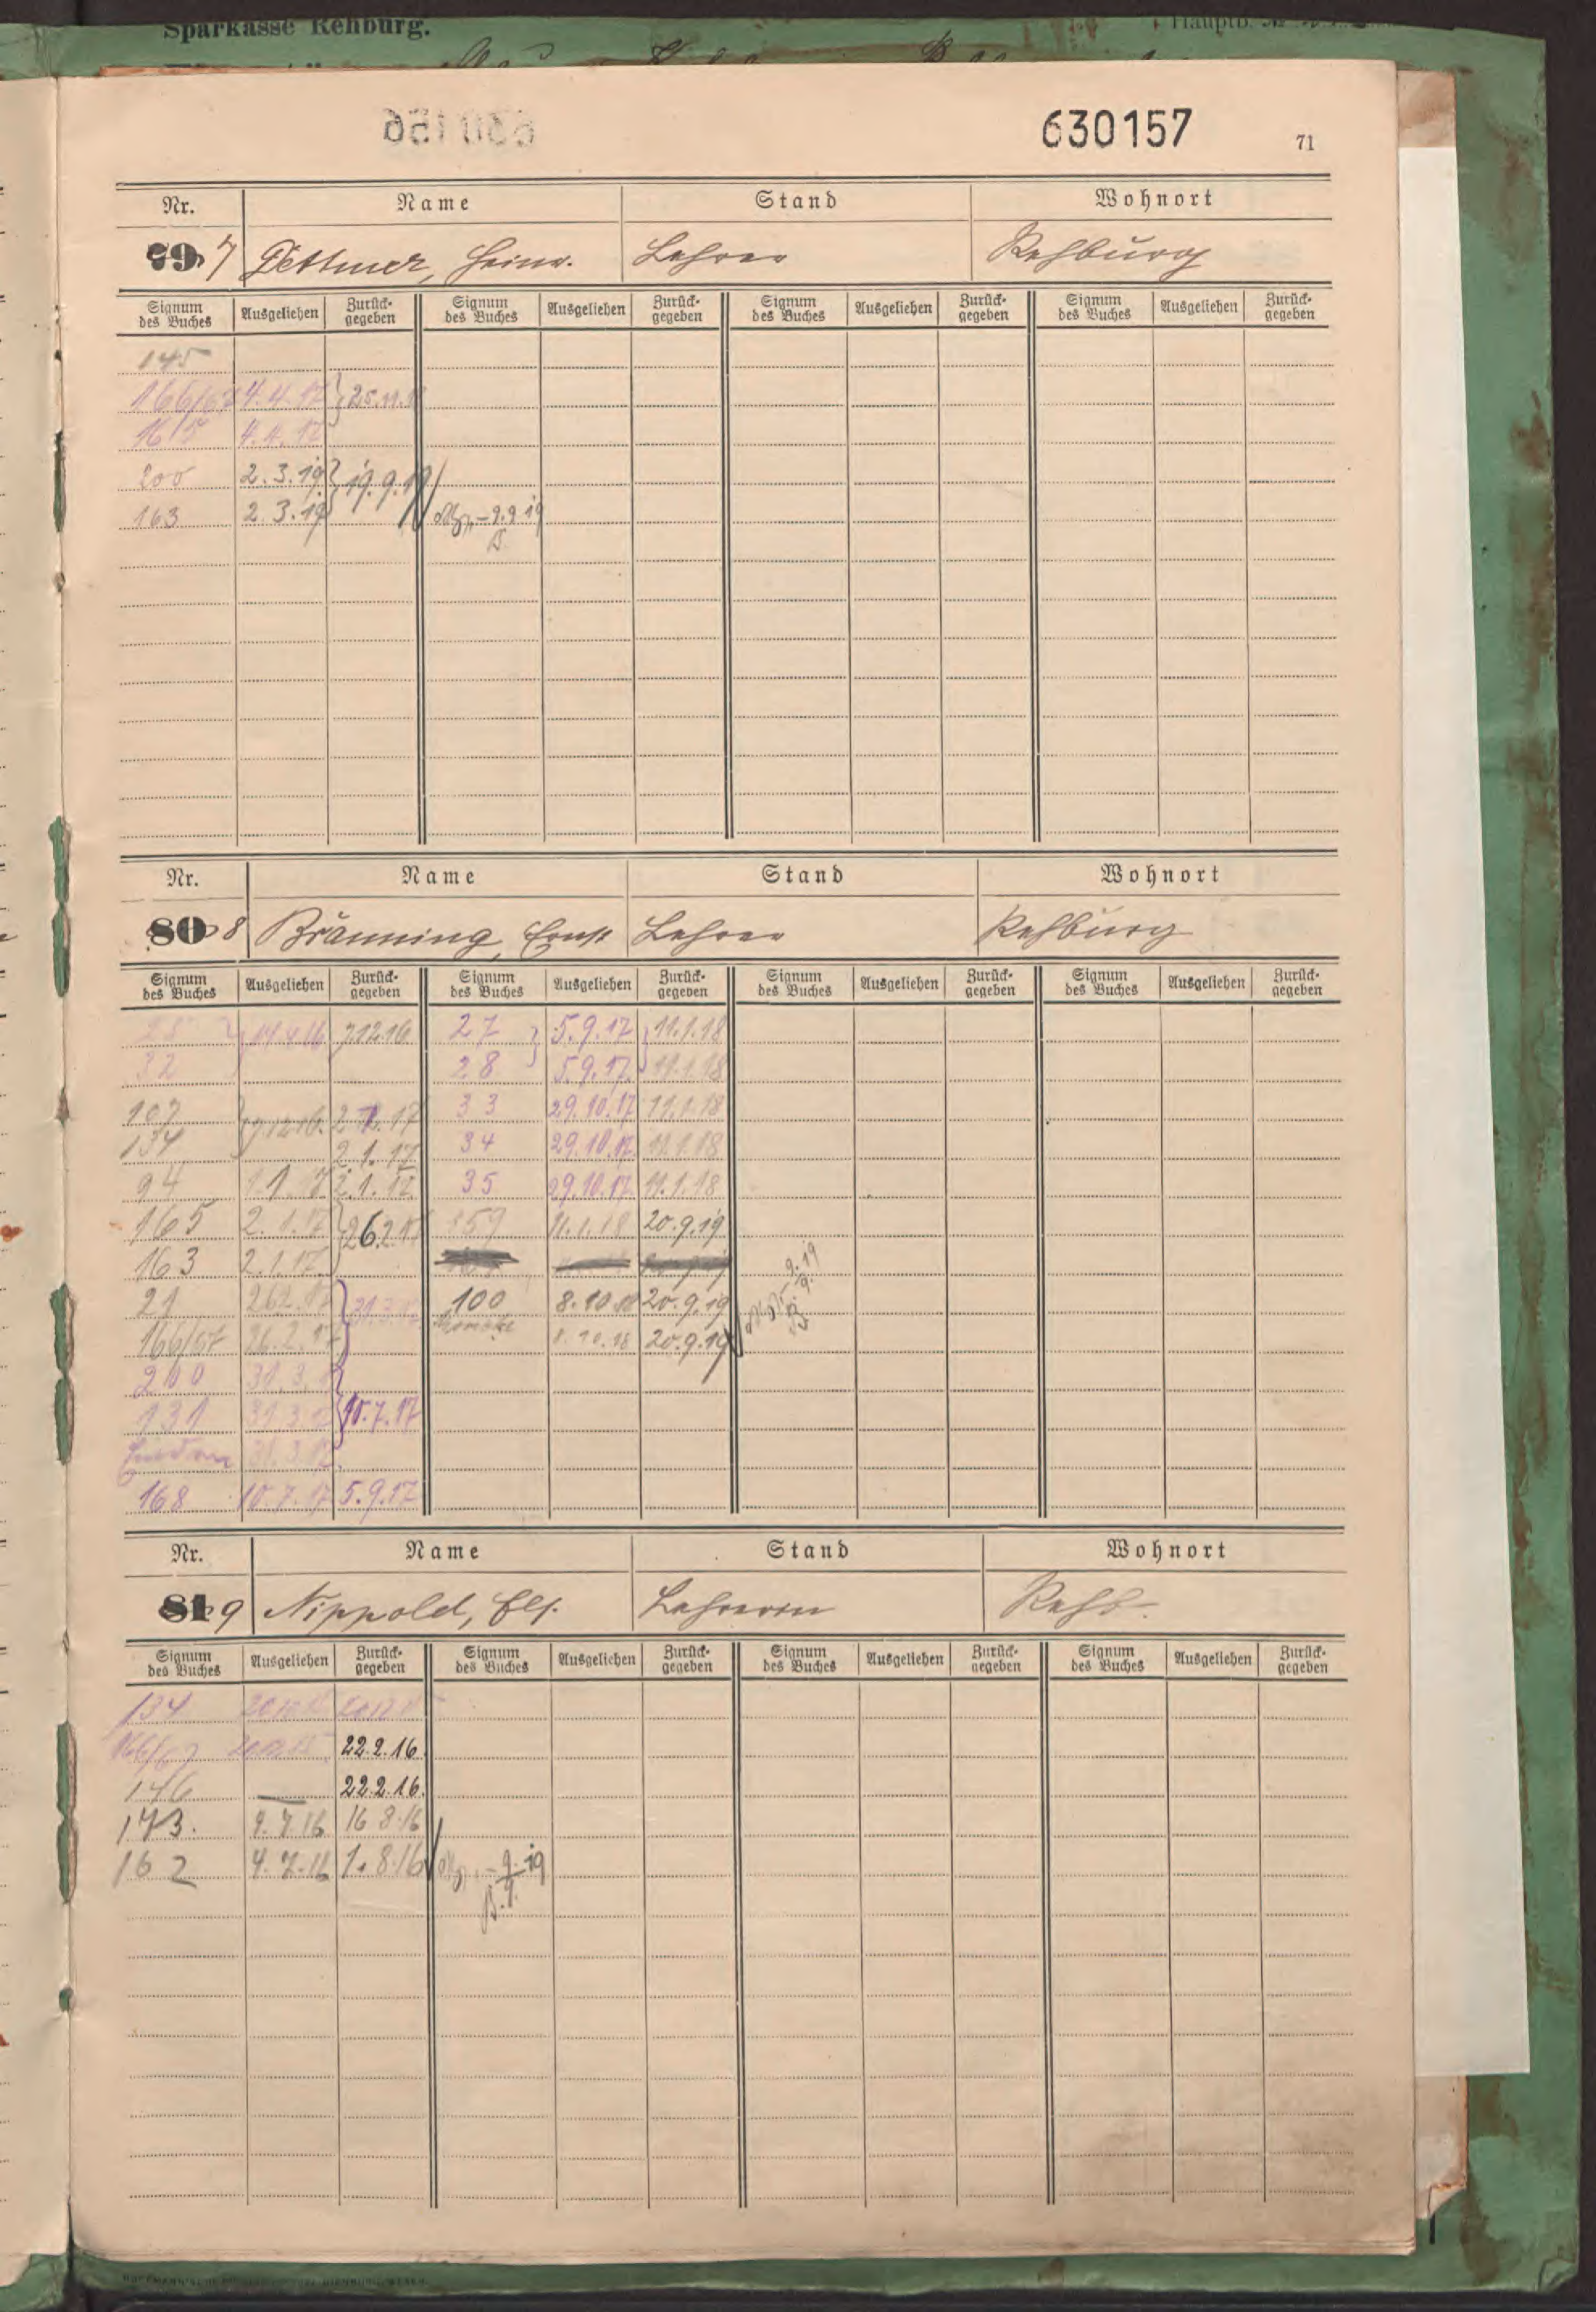 Sparkasse Rehburg.
630157
71
Nr. Name Stand Wohnort
79 7 Dettmer, Heinr. Lehrer Rehburg
Signum des Buches Ausgeliehen Zurück-gegeben Signum des Buches Ausgeliehen Zurück-gegeben Signum des Buches Ausgeliehen Zurück-gegeben Signum des Buches Ausgeliehen Zurück-gegeben
145
166/67 4.4.17 } 25.11.
165 4.4.17
200 2.3.19 } 19.9.19
163 2.3.19 – 9.9.19
Nr. Name Stand Wohnort
80 8 Bränning, Ernst Lehrer Rehburg
Signum des Buches Ausgeliehen Zurück-gegeben Signum des Buches Ausgeliehen Zurück-gegeben Signum des Buches Ausgeliehen Zurück-gegeben Signum des Buches Ausgeliehen Zurück-gegeben
7.12.16 27 } 5.9.17 } 11.1.18
32 28 5.9.17. 11.1.18
107 33 29.10.17 11.1.18
134 2.1.17 34 29.10.17. 11.1.18
94 1.1.17 2.1.17 35 29.10.17. 11.1.18
165 2.1.17 } 26.2.17 159 11.1.18 20.9.19
163 2.1.17.
21 26.2.17 } 31.3.17 100 8.10.18 20.9.19
166/67 26.2.17 8.10.18 20.9.19
200 31.3.17
131 31.3.17 } 10.7.17
31.3.17.
168 10.7.17 5.9.17
Nr. Name Stand Wohnort
81 9 Nippold, Els. Lehrerin Rehb.
Signum des Buches Ausgeliehen Zurück-gegeben Signum des Buches Ausgeliehen Zurück-gegeben Signum des Buches Ausgeliehen Zurück-gegeben Signum des Buches Ausgeliehen Zurück-gegeben
134
166/67 22.2.16
146 — 22.2.16.
173. 4.7.16 16 8.16
162 4.7.16 1.8.16